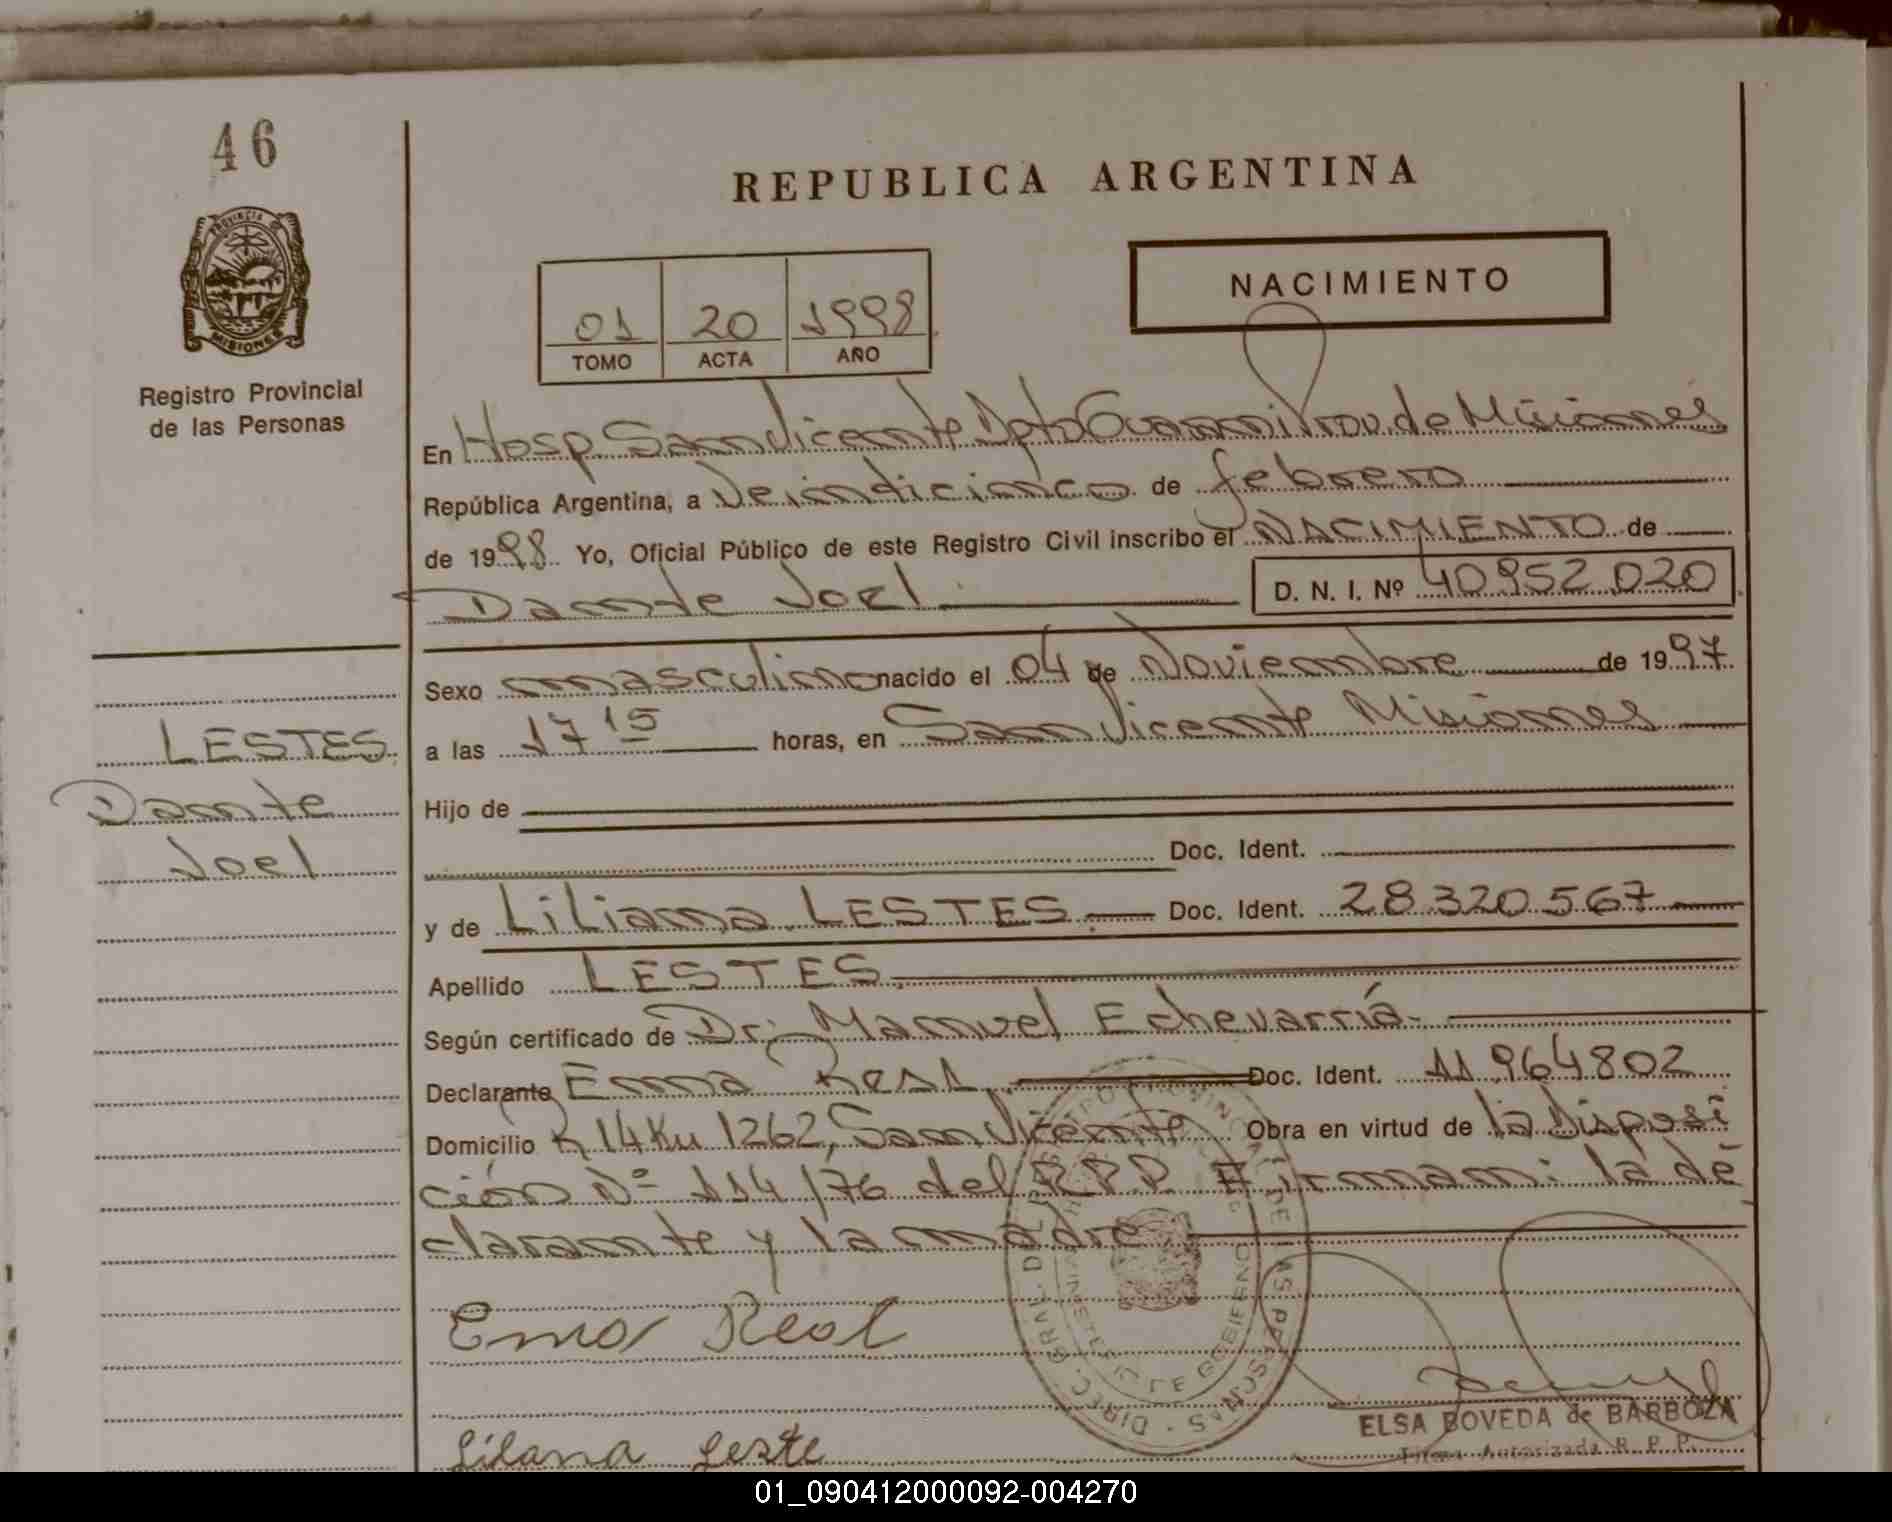 46
PROVINCIA DE
MISIONES
Registro Provincial
de las Personas
REPUBLICA ARGENTINA
01 20 1998
TOMO ACTA AÑO
NACIMIENTO
En Hosp. San Vicente, Dpto Guarani Prov. de Misiones
República Argentina, a Veinticinco de febrero
de 1998 Yo, Oficial Público de este Registro Civil inscribo el NACIMIENTO de
Dante Joel D. N. I. Nº 40.952.020
Sexo masculino nacido el 04 de Noviembre de 1997
a las 17 15 horas, en San Vicente Misiones
LESTES
Dante
Joel
Hijo de
Doc. Ident.
y de Liliana LESTES Doc. Ident. 28.320.567
Apellido LESTES
Según certificado de Dr. Manuel Echevarría
Declarante Ema Doc. Ident. 11.964802
Domicilio R 14 Km 1262, San Vicente Obra en virtud de la Disposi
ción Nº 114/76 del R.P.P. Firman: la de
clarante y la madre
Ema Real
Liliana Leste
ELSA BOVEDA de BARBOZA
Firma Autorizada R. P. P.
01_090412000092-004270